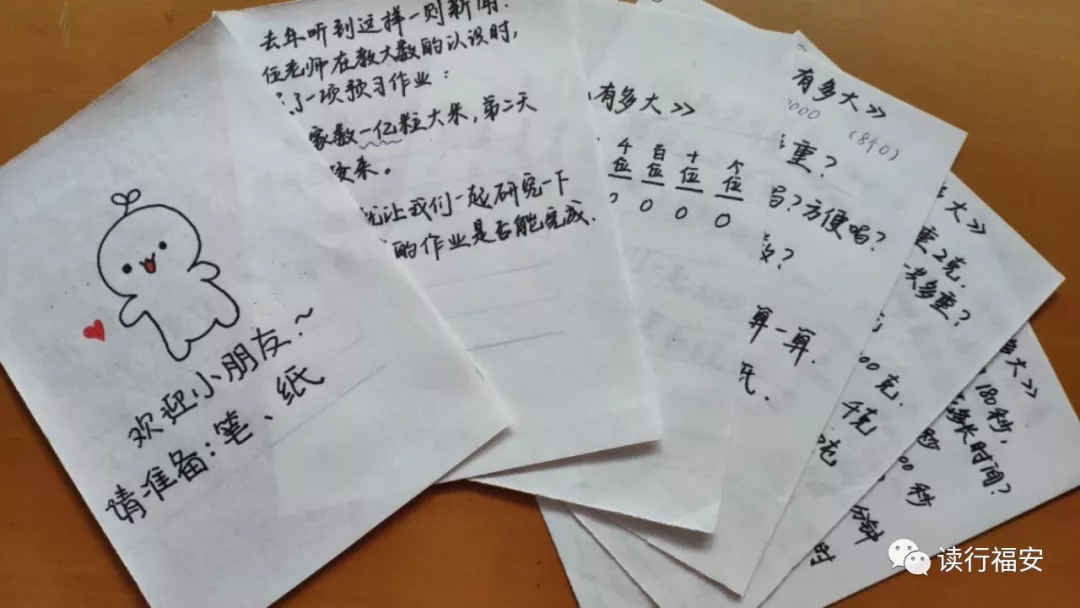 欢迎小朋友~
请准备:笔、纸
去年听到这样一则新闻:
位老师在教大数的认识时,
了一项预习作业:
家数一亿粒大米,第二天
来。
让我们一起研究一下
的作业是否能完成.
有多大》
千位 百位 十位 个位
0 0 0 0
有多大》
0000 (840)
重?
方便吗?
算一算.
多大》
重2克.
共多重?
00克.
千克
多大》
180秒,
多长时间?
秒
00秒
分钟
时
读行福安